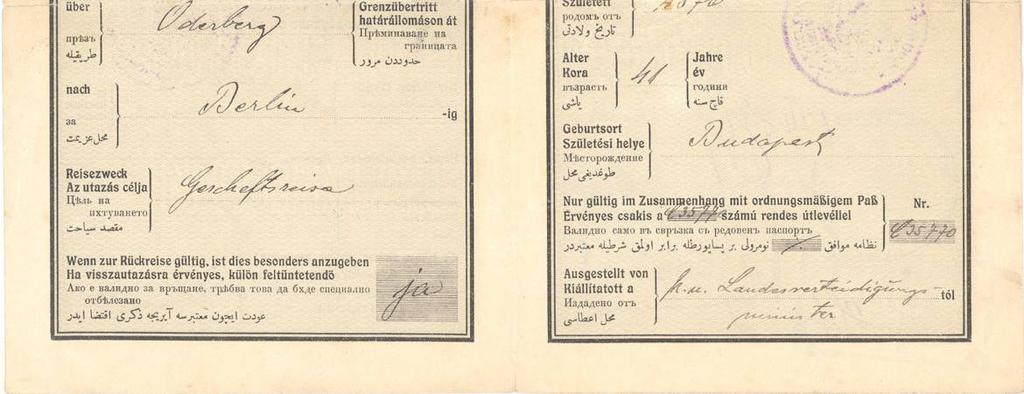 über
прѣзъ
طريقيله
Oderberg
Grenzübertritt
határállomáson át
Прѣминаване на
границата
حدوددن مرور
nach
за
محل عزيمت
Berlin
-ig
Reisezweck
Az utazás célja
Цѣль на
пхтуването
مقصد سياحت
Gescheftsreise
Wenn zur Rückreise gültig, ist dies besonders anzugeben
Ha visszautazásra érvényes, külön feltüntetendö
Ако е валидно за връщане, трѣбва това да бхде специално
отбѣлезано
عودت ايچون معتبرسه آيريجه ذكرى اقتضا ايدر
ja
Született
родомъ отъ
تاريخ ولادتى
Alter
Kora
възрасть
ياشى
41
Jahre
év
години
قاچ سنه
Geburtsort
Születési helye
Мѣсторождение
طوغديغى محل
Budapest
Nur gültig im Zusammenhang mit ordnungsmäßigem Paß
Érvényes csakis a 35770 számú rendes útlevéllel
Валидно само въ свръзка съ редовенъ паспортъ
نظامه موافق نومرولى بر پساپورطله برابر اولمق شرطيله معتبردر
Nr.
35770
Ausgestellt von
Kiállítatott a
Издадено отъ
محل اعطاسى
k.u. Landesverteidigungs-
minister
tól